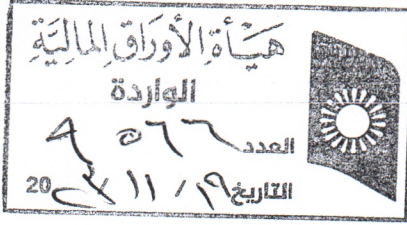 هيأة الأوراق المالية
الواردة
العدد
التاريخ ١٩ / ١١ / 20